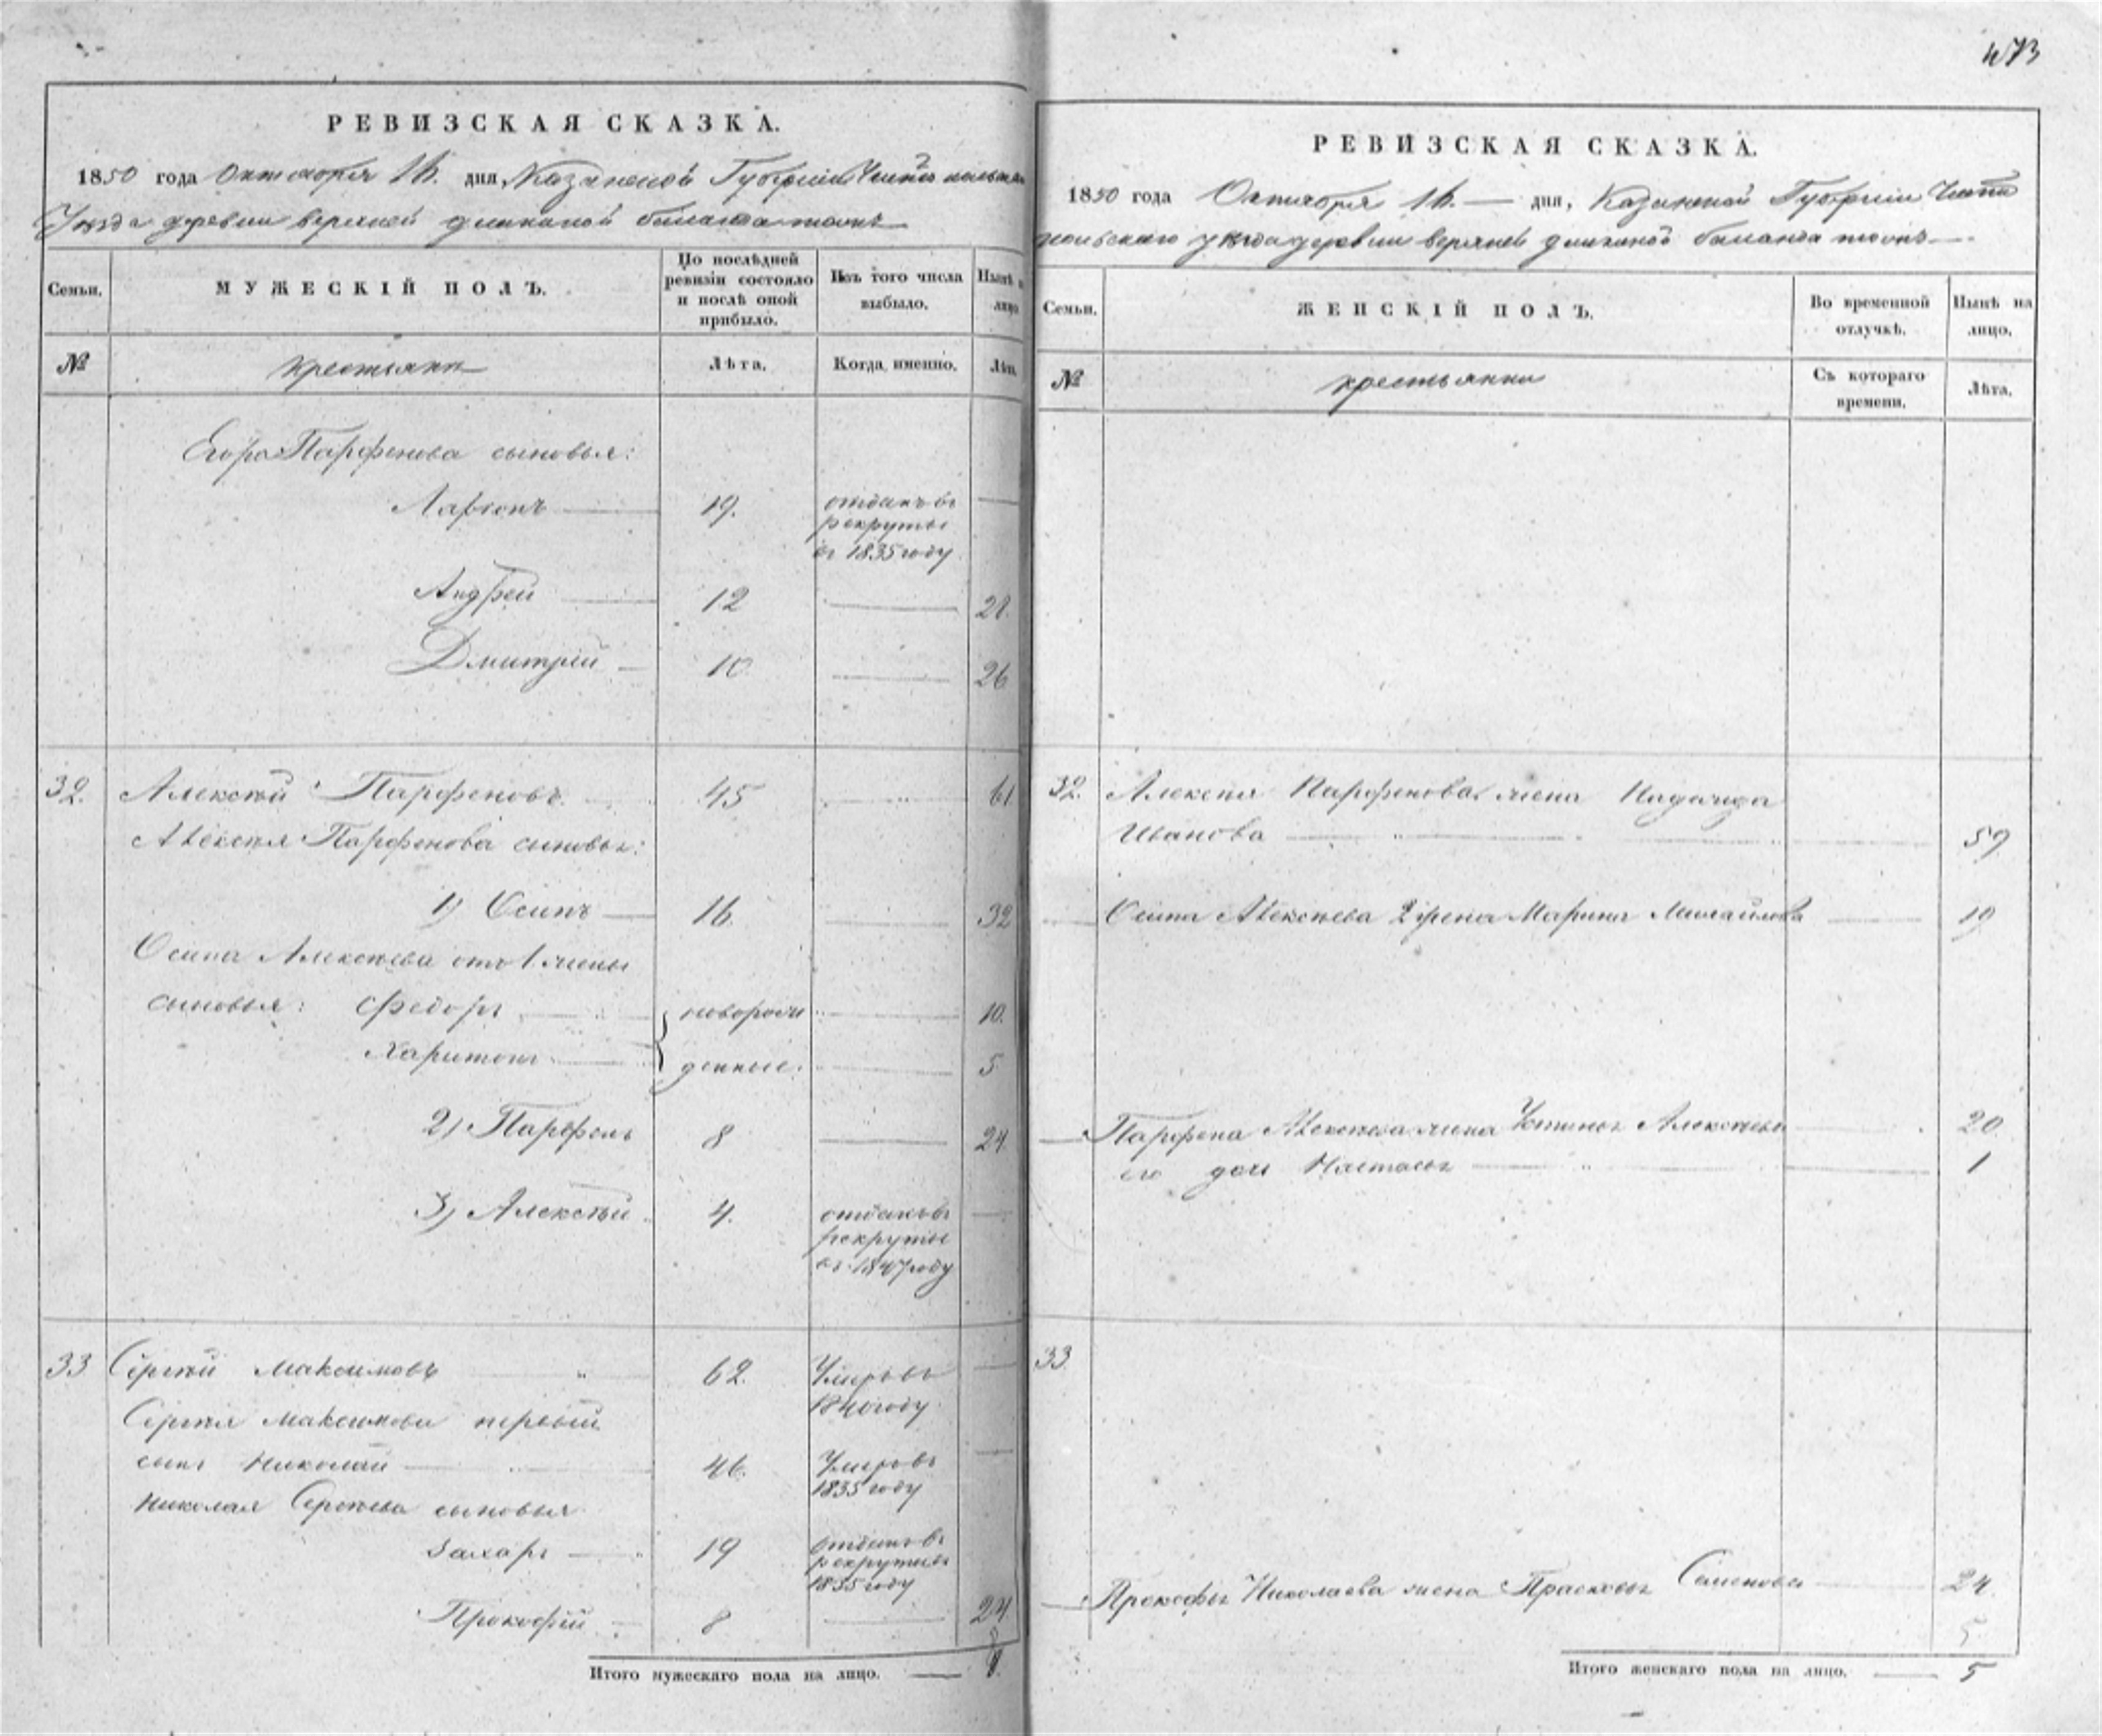 473
РЕВИЗСКАЯ СКАЗКА.
1850 года Октября 16. дня, Казанской Губернiи
Уѣзда деревни верхней
Семьи. МУЖЕСКІЙ ПОЛЪ. По послѣдней ревизіи состояло и послѣ оной прибыло. Изъ того числа выбыло. Нынѣ на лицо.
№ крестьяне Лѣта. Когда именно. Лѣта.
Егора Парфенова сыновья:
Ларіонъ 19. отданъ въ рекруты въ 1835 году —
Андрей 12 — 28.
Дмитрій 10 — 26
32. Алексѣй Парфеновъ 45 — 61
Алексѣя Парфенова сыновья:
1) Осипъ 16. — 32
Осипа Алексѣева отъ 1 жены
сыновья: Федоръ новорож — 10.
Харитонъ денные. — 5
2) Парфенъ 8 — 24.
3) Алексѣй 4. отданъ въ рекруты въ 1847 году —
33 Сергѣй Максимовъ 62. Умеръ въ 1840 году —
Сергѣя Максимова первый
сынъ Николай 46. Умеръ въ 1835 году —
Николая Сергѣева сыновья
Захаръ 19 отданъ въ рекруты въ 1835 году
Прокофій 8 — 24
Итого мужескаго пола на лицо. —
РЕВИЗСКАЯ СКАЗКА.
1850 года Октября 16. — дня, Казанской Губернiи Чисто
польскаго уѣзда деревни верхней
Семьи. ЖЕНСКІЙ ПОЛЪ. Во временной отлучкѣ. Нынѣ на лицо.
№ крестьянки Съ котораго времени. Лѣта.
32. Алексѣя Парфенова жена Надежда
Иванова — 59
Осипа Алексѣева 2 жена Марина Михайлова — 19
Парфена Алексѣева жена Устинья Алексѣева 20.
его дочь Настасья — 1
33.
Прокофья Николаева жена Прасковья Семенова 24.
5
Итого женскаго пола на лицо. — 5